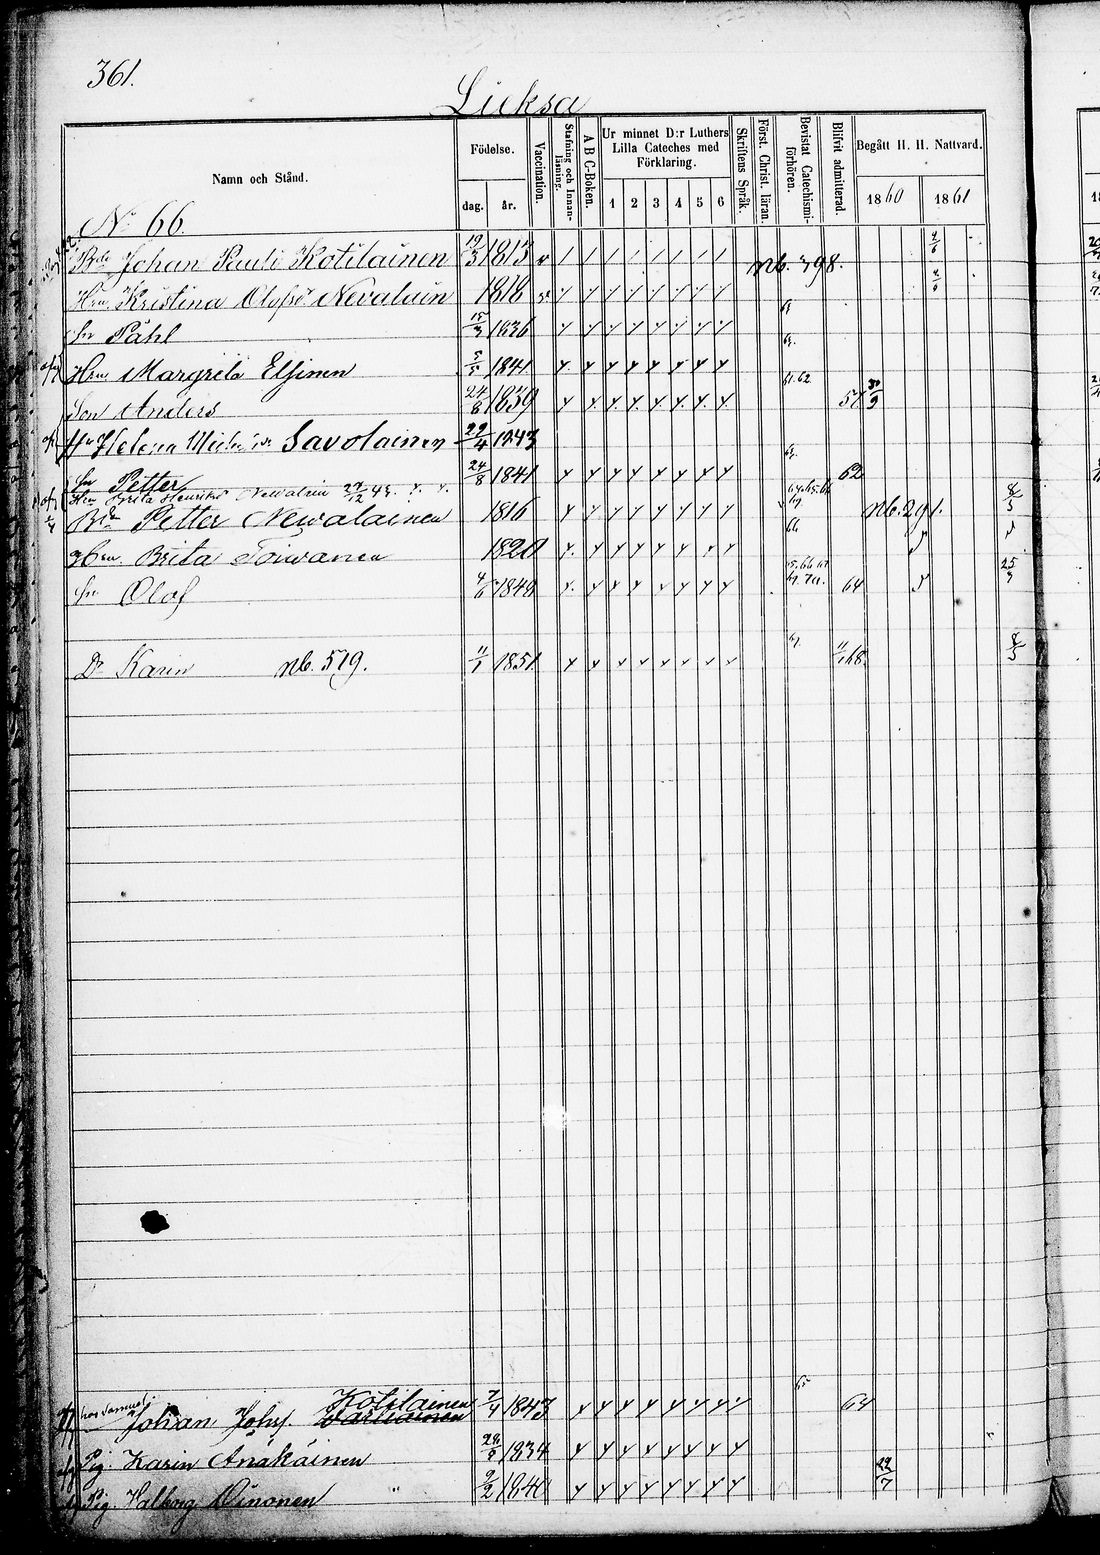 361.
Lieksa
Namn och Stånd.
Födelse.
dag.
år.
Vaccination.
Stafning och Innanläsning.
A B C-Boken.
Ur minnet D:r Luthers Lilla Cateches med Förklaring.
1 2 3 4 5 6
Skriftens Språk.
Först. Christ. läran.
Bevistat Catechismiförhören.
Blifvit admitterad.
Begått H. H. Nattvard.
1860 1861
No 66.
Johan Pauli Kotilainen 19/3 1813 v nb. 398.
Hru Kristina Olofsd Nevalain 1818
Sn Påhl 15/3 1836
Hru Margreta Elsinen 5/5 1841
Son Anders 24/8 1839 61.62 57 30/9
Helena Savolainen 29/4 1843
Sn Petter 24/8 1841 62
Hru Brita Henriksd Nevalain 27/12 43.
Petter Nevalainen 1816 nb. 291. 8/5
Hru Brita Toivanen 1820 66
Sn Olof 4/6 1848 64 25/3
Dr Karin nb. 519. 11/1 1851 67. 11/1 68. 8/5
Kotilainen
Johan Johsf Vartiainen 7/4 1843 65 64
Pig. Karin Anakäinen 28/8 1834
Pig. Valbrg Oinonen 9/2 1840 22/7